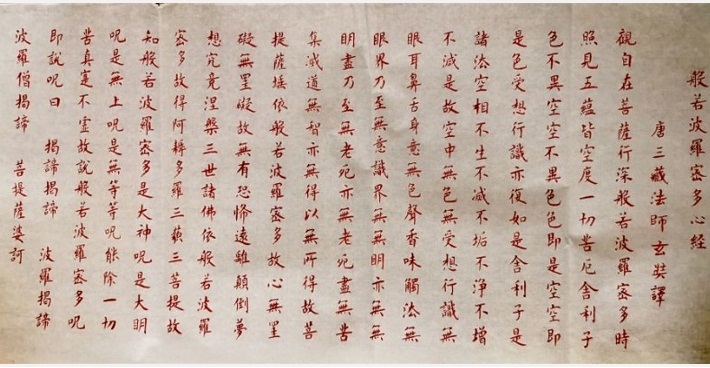 般若波羅密多心経
唐三藏法師玄奘譯
觀自在菩薩行深般若波羅密多時
照見五蘊皆空度一切苦厄舍利子
色不異空空不異色色即是空空即
是色受想行識亦復如是舍利子是
諸法空相不生不滅不垢不淨不增
不減是故空中無色無受想行識無
眼耳鼻舌身意無色聲香味觸法無
眼界乃至無意識界無無明亦無無
明盡乃至無老死亦無老死盡無苦
集滅道無智亦無得以無所得故菩
提薩埵依般若波羅密多故心無罣
礙無罣礙故無有恐怖遠離顛倒夢
想究竟涅槃三世諸佛依般若波羅
密多故得阿耨多羅三藐三菩提故
知般若波羅密多是大神呪是大明
呪是無上呪是無等等呪能除一切
苦真實不虛故說般若波羅密多呪
即說呪曰 揭諦揭諦 波羅揭諦
波羅僧揭諦 菩提薩婆訶